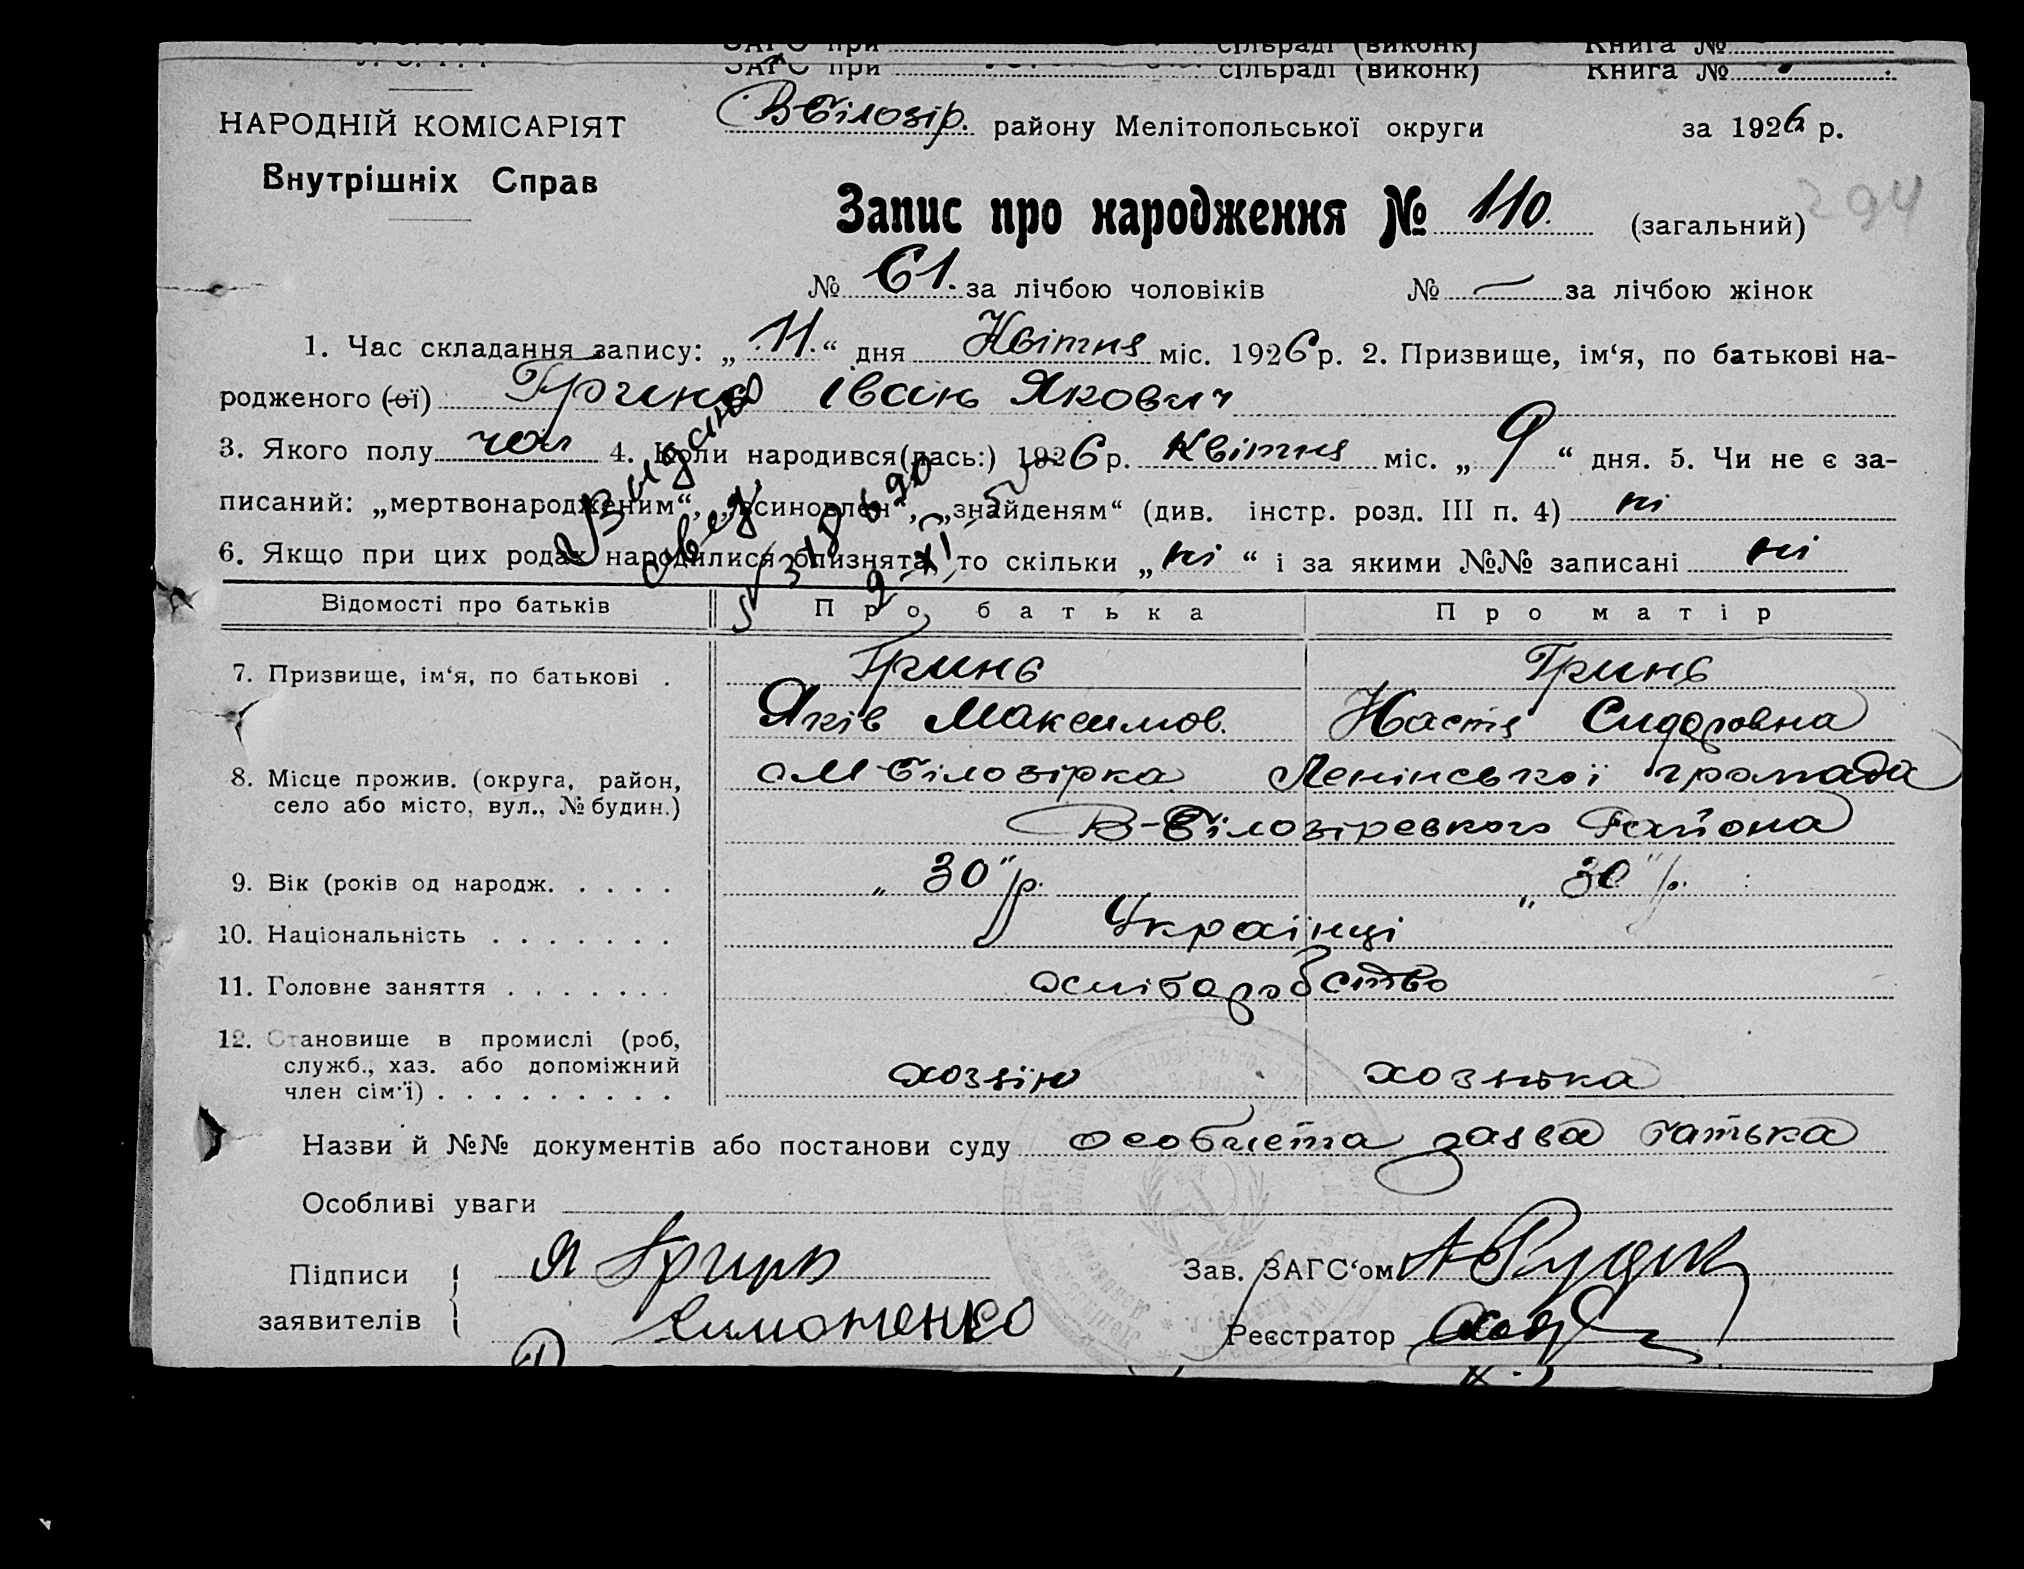 ЗАГС при сільраді (виконк) Книга №
ЗАГС при сільраді (виконк) Книга №
НАРОДНІЙ КОМІСАРІЯТ
Внутрішніх Справ
В-Білозір. району Мелітопольської округи за 1926 р.
Запис про народження № 110. (загальний) 294
№ 61. за лічбою чоловіків № — за лічбою жінок
1. Час складання запису: „11.“ дня Квітня міс. 1926 р. 2. Призвище, ім‘я, по батькові на-
родженого (ої) Гринь Івань Якович
3. Якого полу чол 4. Коли народився(лась:) 1926 р. Квітня міс. „9“ дня. 5. Чи не є за-
писаний: „мертвонародженим“, „всиновлен“, „знайденям“ (див. інстр. розд. III п. 4) ні
6. Якщо при цих родах народилися близнята, то скільки „ні“ і за якими №№ записані ні
Выдано
свед.
Відомості про батьків Про батька Про матір
7. Призвище, ім‘я, по батькові . Гринь Гринь
Яків Максимов. Настя Сидоровна
8. Місце прожив. (округа, район,
село або місто, вул., № будин.)
М Білозірка Ленінської громада
В-Білозіревкого Района
9. Вік (років од народж. . . . . „30“ р. „30“ р.
10. Національність . . . . . . . Українці
11. Головне заняття . . . . . . .
12. Становище в промислі (роб,
служб., хаз. або допоміжний
член сім‘ї) . . . . . . . . . хозяін хозяйка
Назви й №№ документів або постанови суду особиста заява батька
Особливі уваги
Підписи
заявителів
Я Гринь
Зав. ЗАГС‘ом
Реєстратор